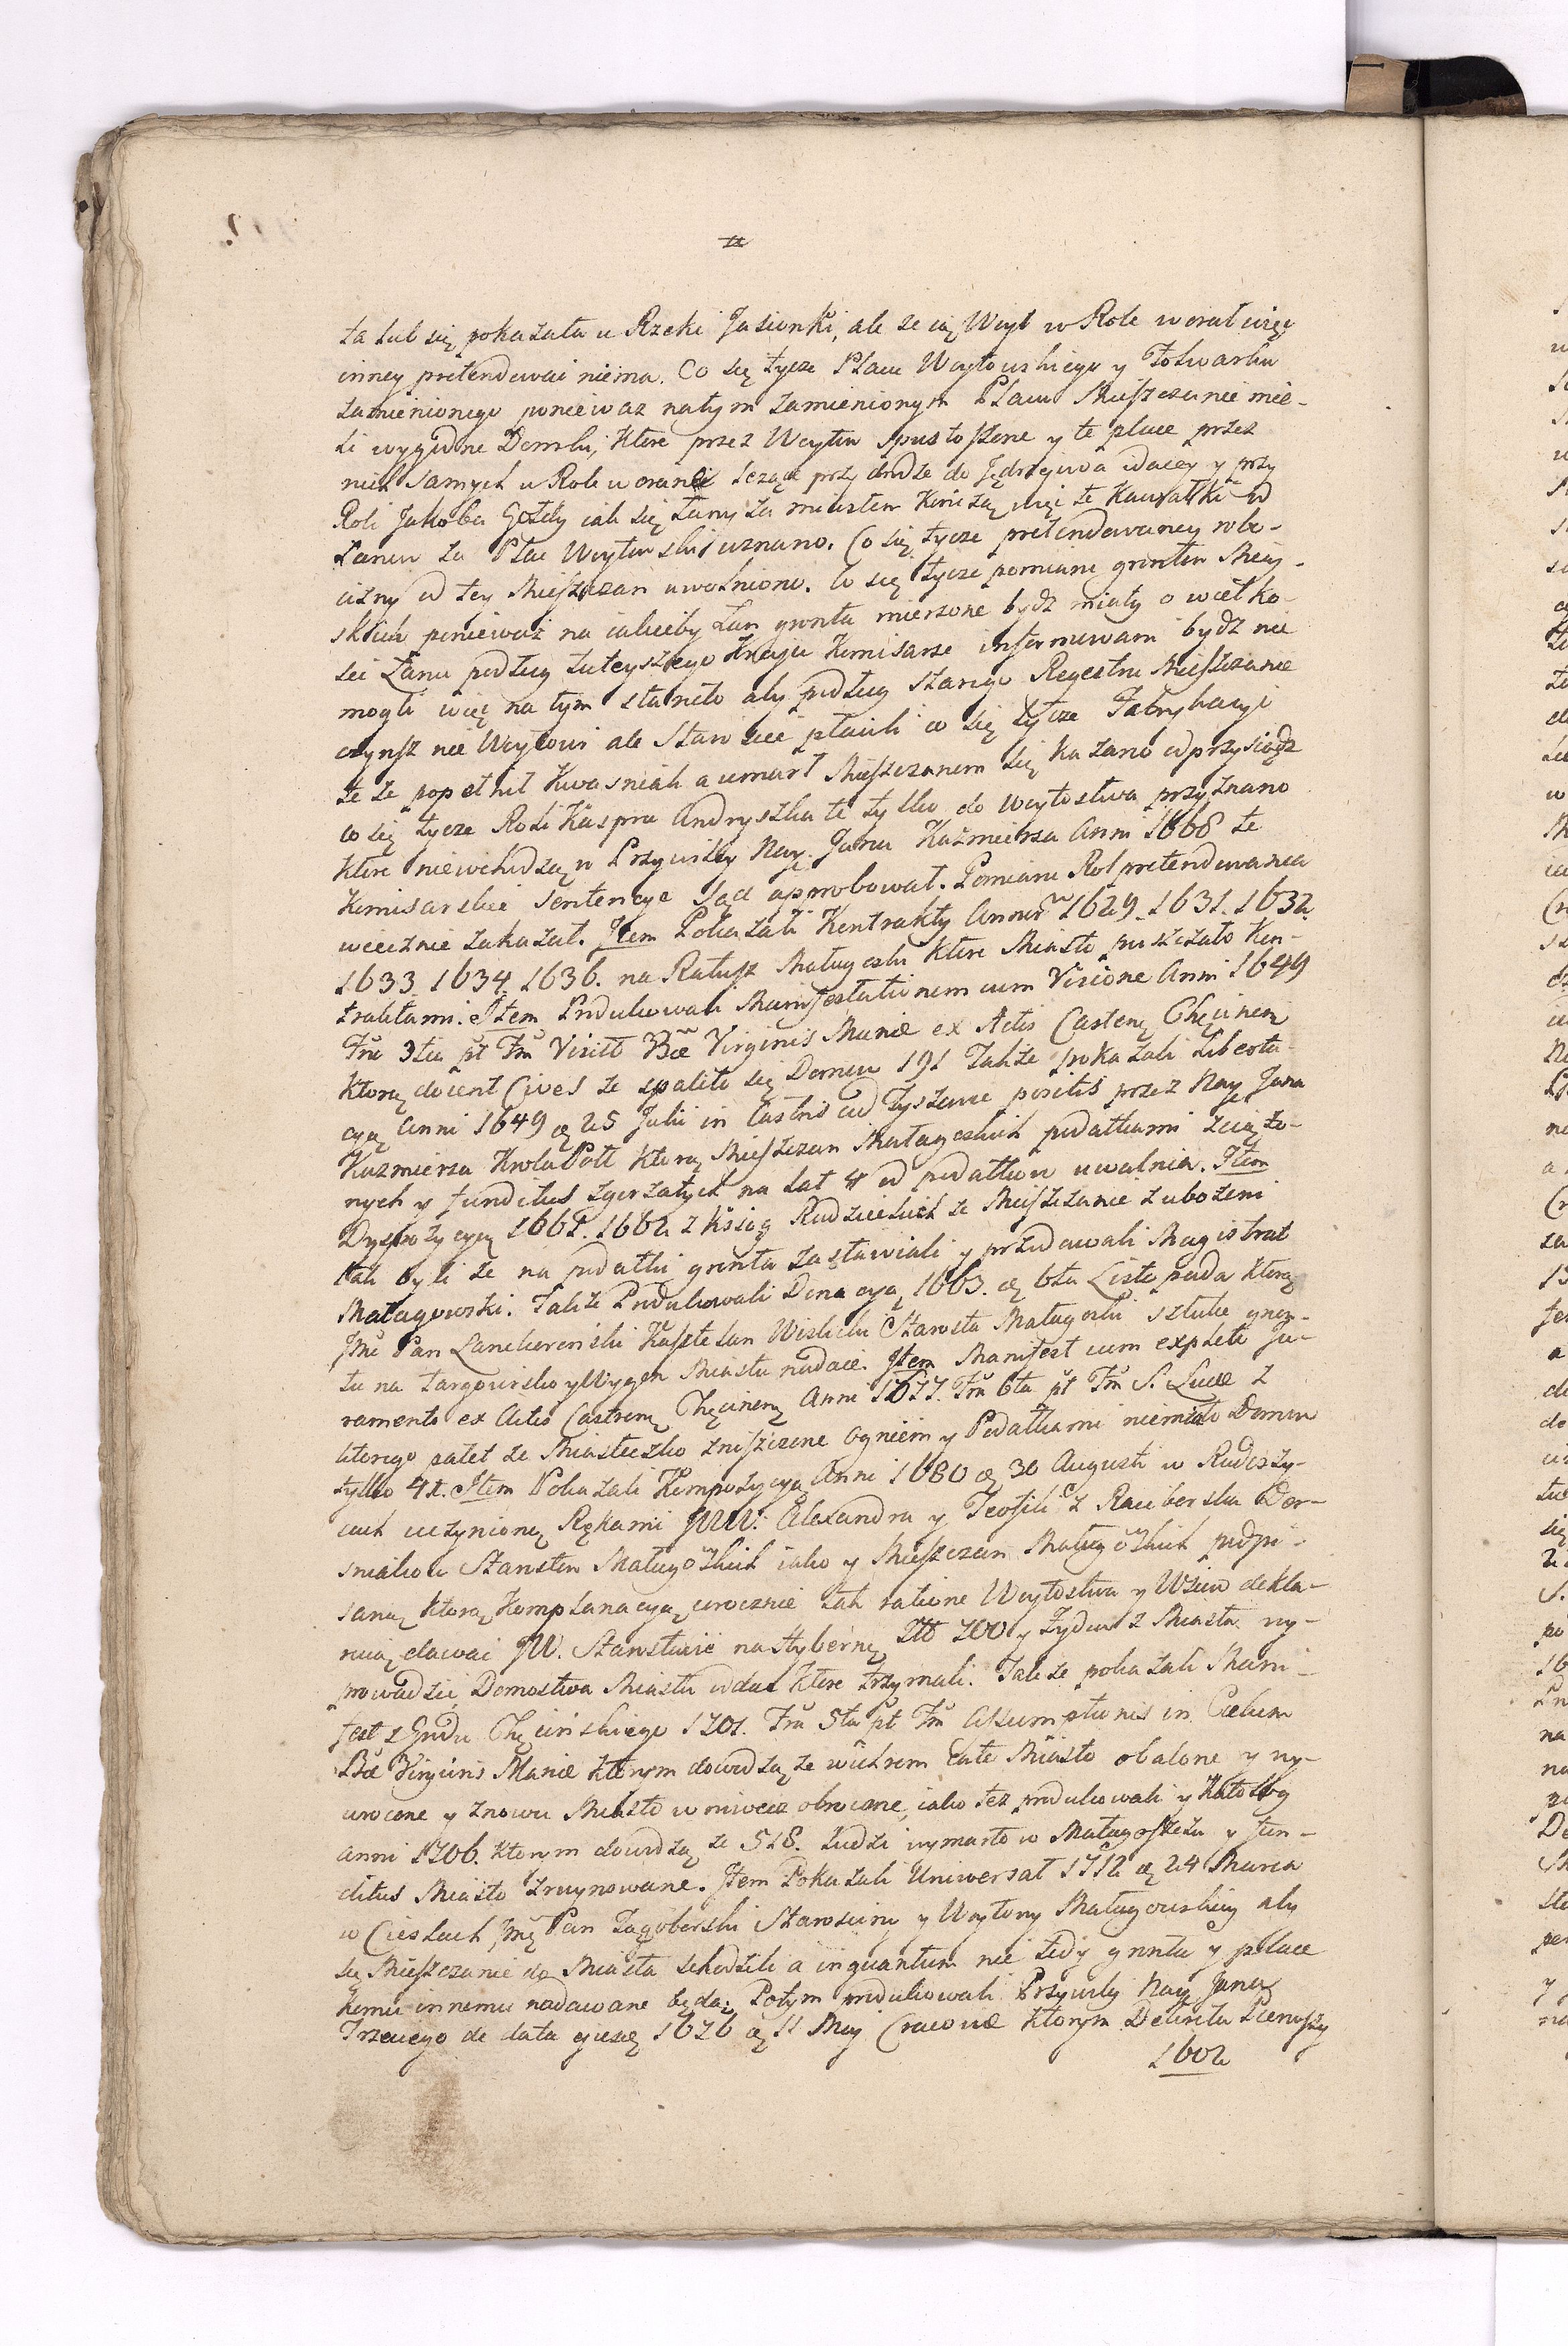 ta lub się pokazała u Rzeki Jasionki, ale ze ią Wuyt w Role worał więc
inney pretendować niema. Co się tycze Placu Woytowskiego y Folwarku
zamienionego poniewaz natym zamienionym Placu Mieszczanie mie-
li wygodne Domki, ktore przez Woytów spustoszone y te place przez
nich samych w Role worane lezące przy drodze do Jędrzejowa idącey y przy
Roli Jakoba Gozdy iak się Łany za miastem kończą więc te Kawałki od
Łanów za Plac Woytowski uznano. Co się tycze pretendowaney robo-
cizny od tey Mieszczan uwolniono. Co się tycze pomiaru gruntów Miey-
skich ponieważ na iakieby Łan grunta mierzone bydź miały o wielko-
ści Łanu podług tuteyszego Kraju Komisarze informowani bydź nie
mogli więc na tym stanęło aby podług starego Regestru Mieszczanie
czynsz nie Woytowi ale Staroście płacili co się tycze Fabrykacyi
że ze popełnił Kwasniak a umarł Mieszczanom się kazano odprzysiądz
co się tycze Roli Kaspra Andryszka te tylko do Woytostwa przyznano
ktore niewchodzą w Przywiley Nay. Jana Kazmierza Anni 1668 te
Komisarskie Sentencye Sąd approbował. Pomiaru Rol pretendowania
wiecznie zakazał. Item Pokazali Kontrakty Annor 1629. 1631. 1632.
1633. 1634. 1636. na Ratusz Małagoski ktore Miasto puszczało Kon-
traktami. Item Produkowali Manifestationem cum Visione Anni 1649
Fria 3tia pt Fm Visitt Bæ Virginis Mariæ ex Actis Castren Chęcinen
ktorą docent Cives ze spaliło się Domow 191 Także pokazali Liberta-
cyą Anni 1649 25 Julii in Castris ad Zyszawe positis przez Nay Jana
Kazmierza Krola Poll ktorą Mieszczan Małagoskich podatkami zciążo-
nych y funditus zgorzałych na lat 4 od podatkow uwalnia. Item
Dyspozycyą 1661. 1662 z ksiąg Radzieckich ze Mieszczanie zubożeni
tak byli że na podatki grunta zastawiali y przedawali Magistrat
Małagowski. Także Produkowali Donacyą 1663. 6ta Listopada ktorą
Jmc Pan Lanckoroński Kasztelan Wislicki Starosta Małagoski sztukę grun-
tu na targowisko y Wygon Miastu nadaie. Item Manifest cum expleto Ju-
ramento ex Actis Castren Chęcinen Anni 1677. Fria 6ta pt Fm S. Lucæ z
ktorego patet ze Miasteczko zniszczone ogniem y Podatkami niemiało Domow
tylko 41. Item Pokazali Kompozycyą Anni 1680 30 Augusti w Rudoszy-
cach uczynioną Rękami JWW. Alexandra y Teofili z Raciborska Bor-
snialiow Starostow Małagoskich iako y Mieszczan Małagoskich podpi-
saną ktorą Komplanacyą corocznie tak ratione Woytostwa y Wsiow dekla-
ruią dawać JW. Staroscie na Hybernę Złł 700 y Zydow z Miasta wy-
prowadzić Domostwa Miastu oddać ktore trzymali. Także pokazali Mani-
fest z Grodu Chęcińskiego 1701. Fria 5ta pt Fm Assumptionis in Cælum
Bæ Virginis Mariæ ktorym dowodzą ze wichrem całe Miasto obalone y wy-
wrocone y znowu Miasto w niwecz obrocone, iako tez produkowali y Katolog
anni 1706. ktorym dowodzą ze 518. Ludzi wymarło w Małagoszczu y fun-
ditus Miasto zruynowane. Item Pokazali Uniwersał 1712 24 Marca
w Cieslach Jmc Pan Zagoberski Staroscinu y Woytowy Małagowskiey aby
się Mieszczanie do Miasta schodzili a inquantum nie tedy grunta y place
komu innemu nadawane będą. Potym produkowali Przywiley Nay Jana
Trzeciego de data ejusd 1676 11 May Cracoviæ ktorym Dekreta Pierwszy
1602